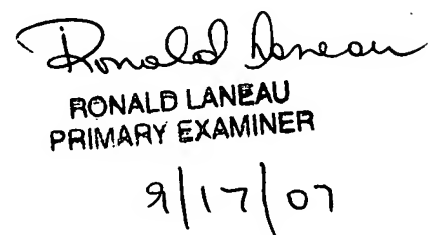 Ronald Laneau
RONALD LANEAU
PRIMARY EXAMINER
9/17/07